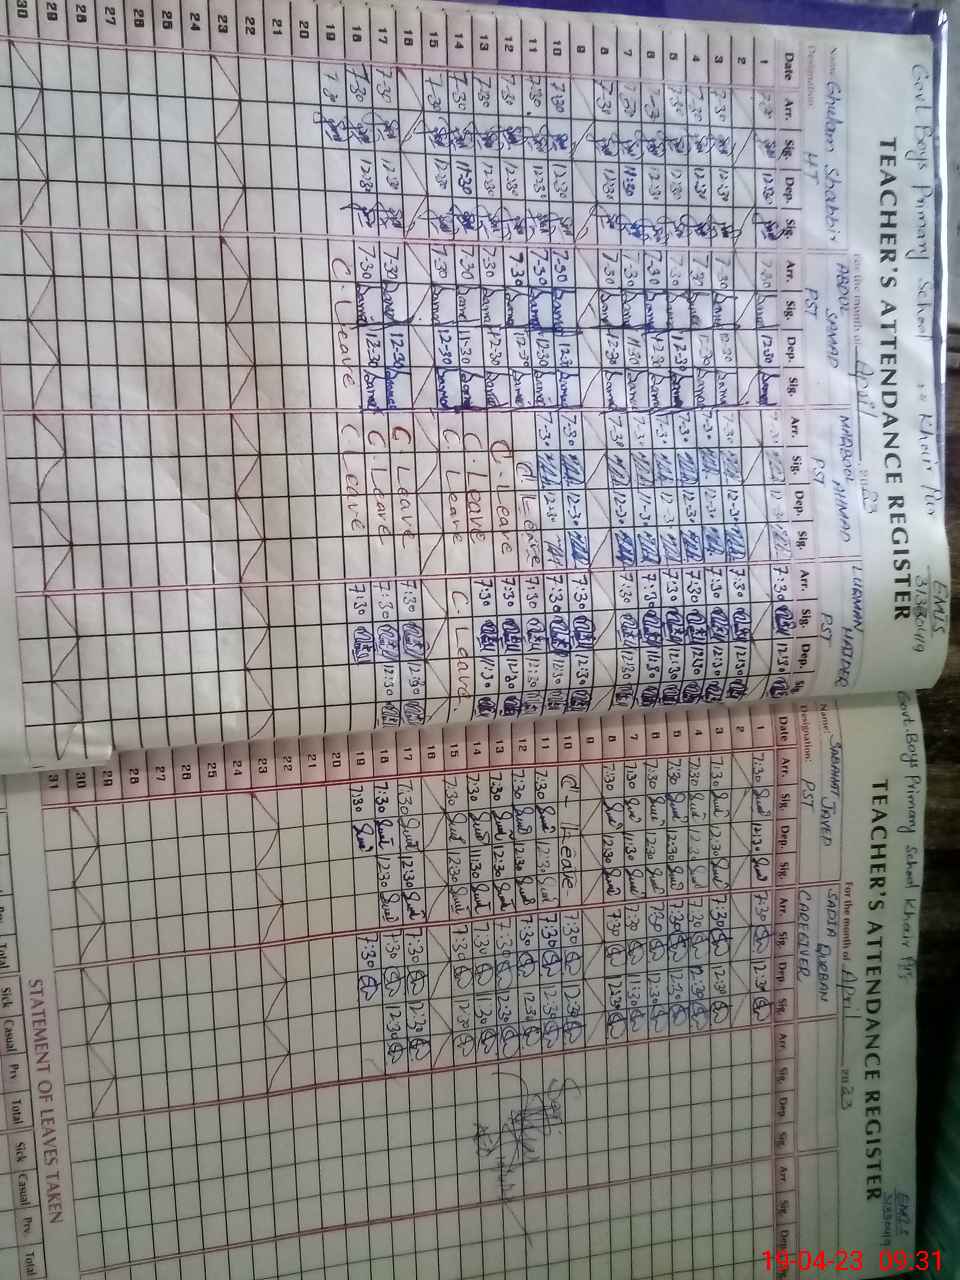 Govt. Boys Primary School Khair Pur
EMIS
31330419
TEACHER'S ATTENDANCE REGISTER
For the month of April 2023
Name Ghulam Shabbir ABDUL SAMAD MAQBOOL AHMAD LUQMAN HAIDER
Designation HT PST PST PST
Date Arr. Sig. Dep. Sig. Arr. Sig. Dep. Sig. Arr. Sig. Dep. Sig. Arr. Sig. Dep. Sig.
1 7:30 12:30 7:30 12:30 7:30 12:30 7:30 12:30
2
3 7:30 12:30 7:30 12:30 7:30 12:30 7:30 12:30
4 7:30 12:30 7:30 12:30 7:30 12:30 7:30 12:30
5 7:30 12:30 7:30 12:30 7:30 12:30 7:30 12:30
6 7:30 12:30 7:30 12:30 7:30 12:30 7:30 12:30
7 7:30 11:30 7:30 11:30 7:30 11:30 7:30 11:30
8 7:30 12:30 7:30 12:30 7:30 12:30 7:30 12:30
9
10 7:30 12:30 7:30 12:30 7:30 12:30 7:30 12:30
11 7:30 12:30 7:30 12:30 7:30 12:30 7:30 12:30
12 7:30 12:30 7:30 12:30 C. Leave 7:30 12:30
13 7:30 12:30 7:30 12:30 C. Leave 7:30 12:30
14 7:30 11:30 7:30 11:30 C. Leave 7:30 11:30
15 7:30 12:30 7:30 12:30 C. Leave C. Leave
16
17 7:30 12:30 7:30 12:30 C. Leave 7:30 12:30
18 7:30 12:30 7:30 12:30 C. Leave 7:30 12:30
19 7:30 C. Leave C. Leave 7:30
20
21
22
23
24
25
26
27
28
29
30
Govt. Boys Primary School Khair Pur
EMIS
31330419
TEACHER'S ATTENDANCE REGISTER
For the month of April 2023
Name: SABAHAT JAVED SADIA QURBAN
Designation: PST CAREGIVER
Date Arr. Sig. Dep. Sig. Arr. Sig. Dep. Sig. Arr. Sig. Dep. Sig. Arr. Sig. Dep.
1 7:30 12:30 7:30 12:30
2
3 7:30 12:30 7:30 12:30
4 7:30 12:30 7:30 12:30
5 7:30 12:30 7:30 12:30
6 7:30 12:30 7:30 12:30
7 7:30 11:30 7:30 11:30
8 7:30 12:30 7:30 12:30
9
10 C - Leave 7:30 12:30
11 7:30 12:30 7:30 12:30
12 7:30 12:30 7:30 12:30
13 7:30 12:30 7:30 12:30
14 7:30 11:30 7:30 11:30
15 7:30 12:30 7:30 12:30
16
17 7:30 12:30 7:30 12:30
18 7:30 12:30 7:30 12:30
19 7:30 7:30
20
21
22
23
24
25
26
27
28
29
30
31
STATEMENT OF LEAVES TAKEN
Prv. Total Sick Casual Prv. Total Sick Casual Prv. Total
19-04-23 09.31